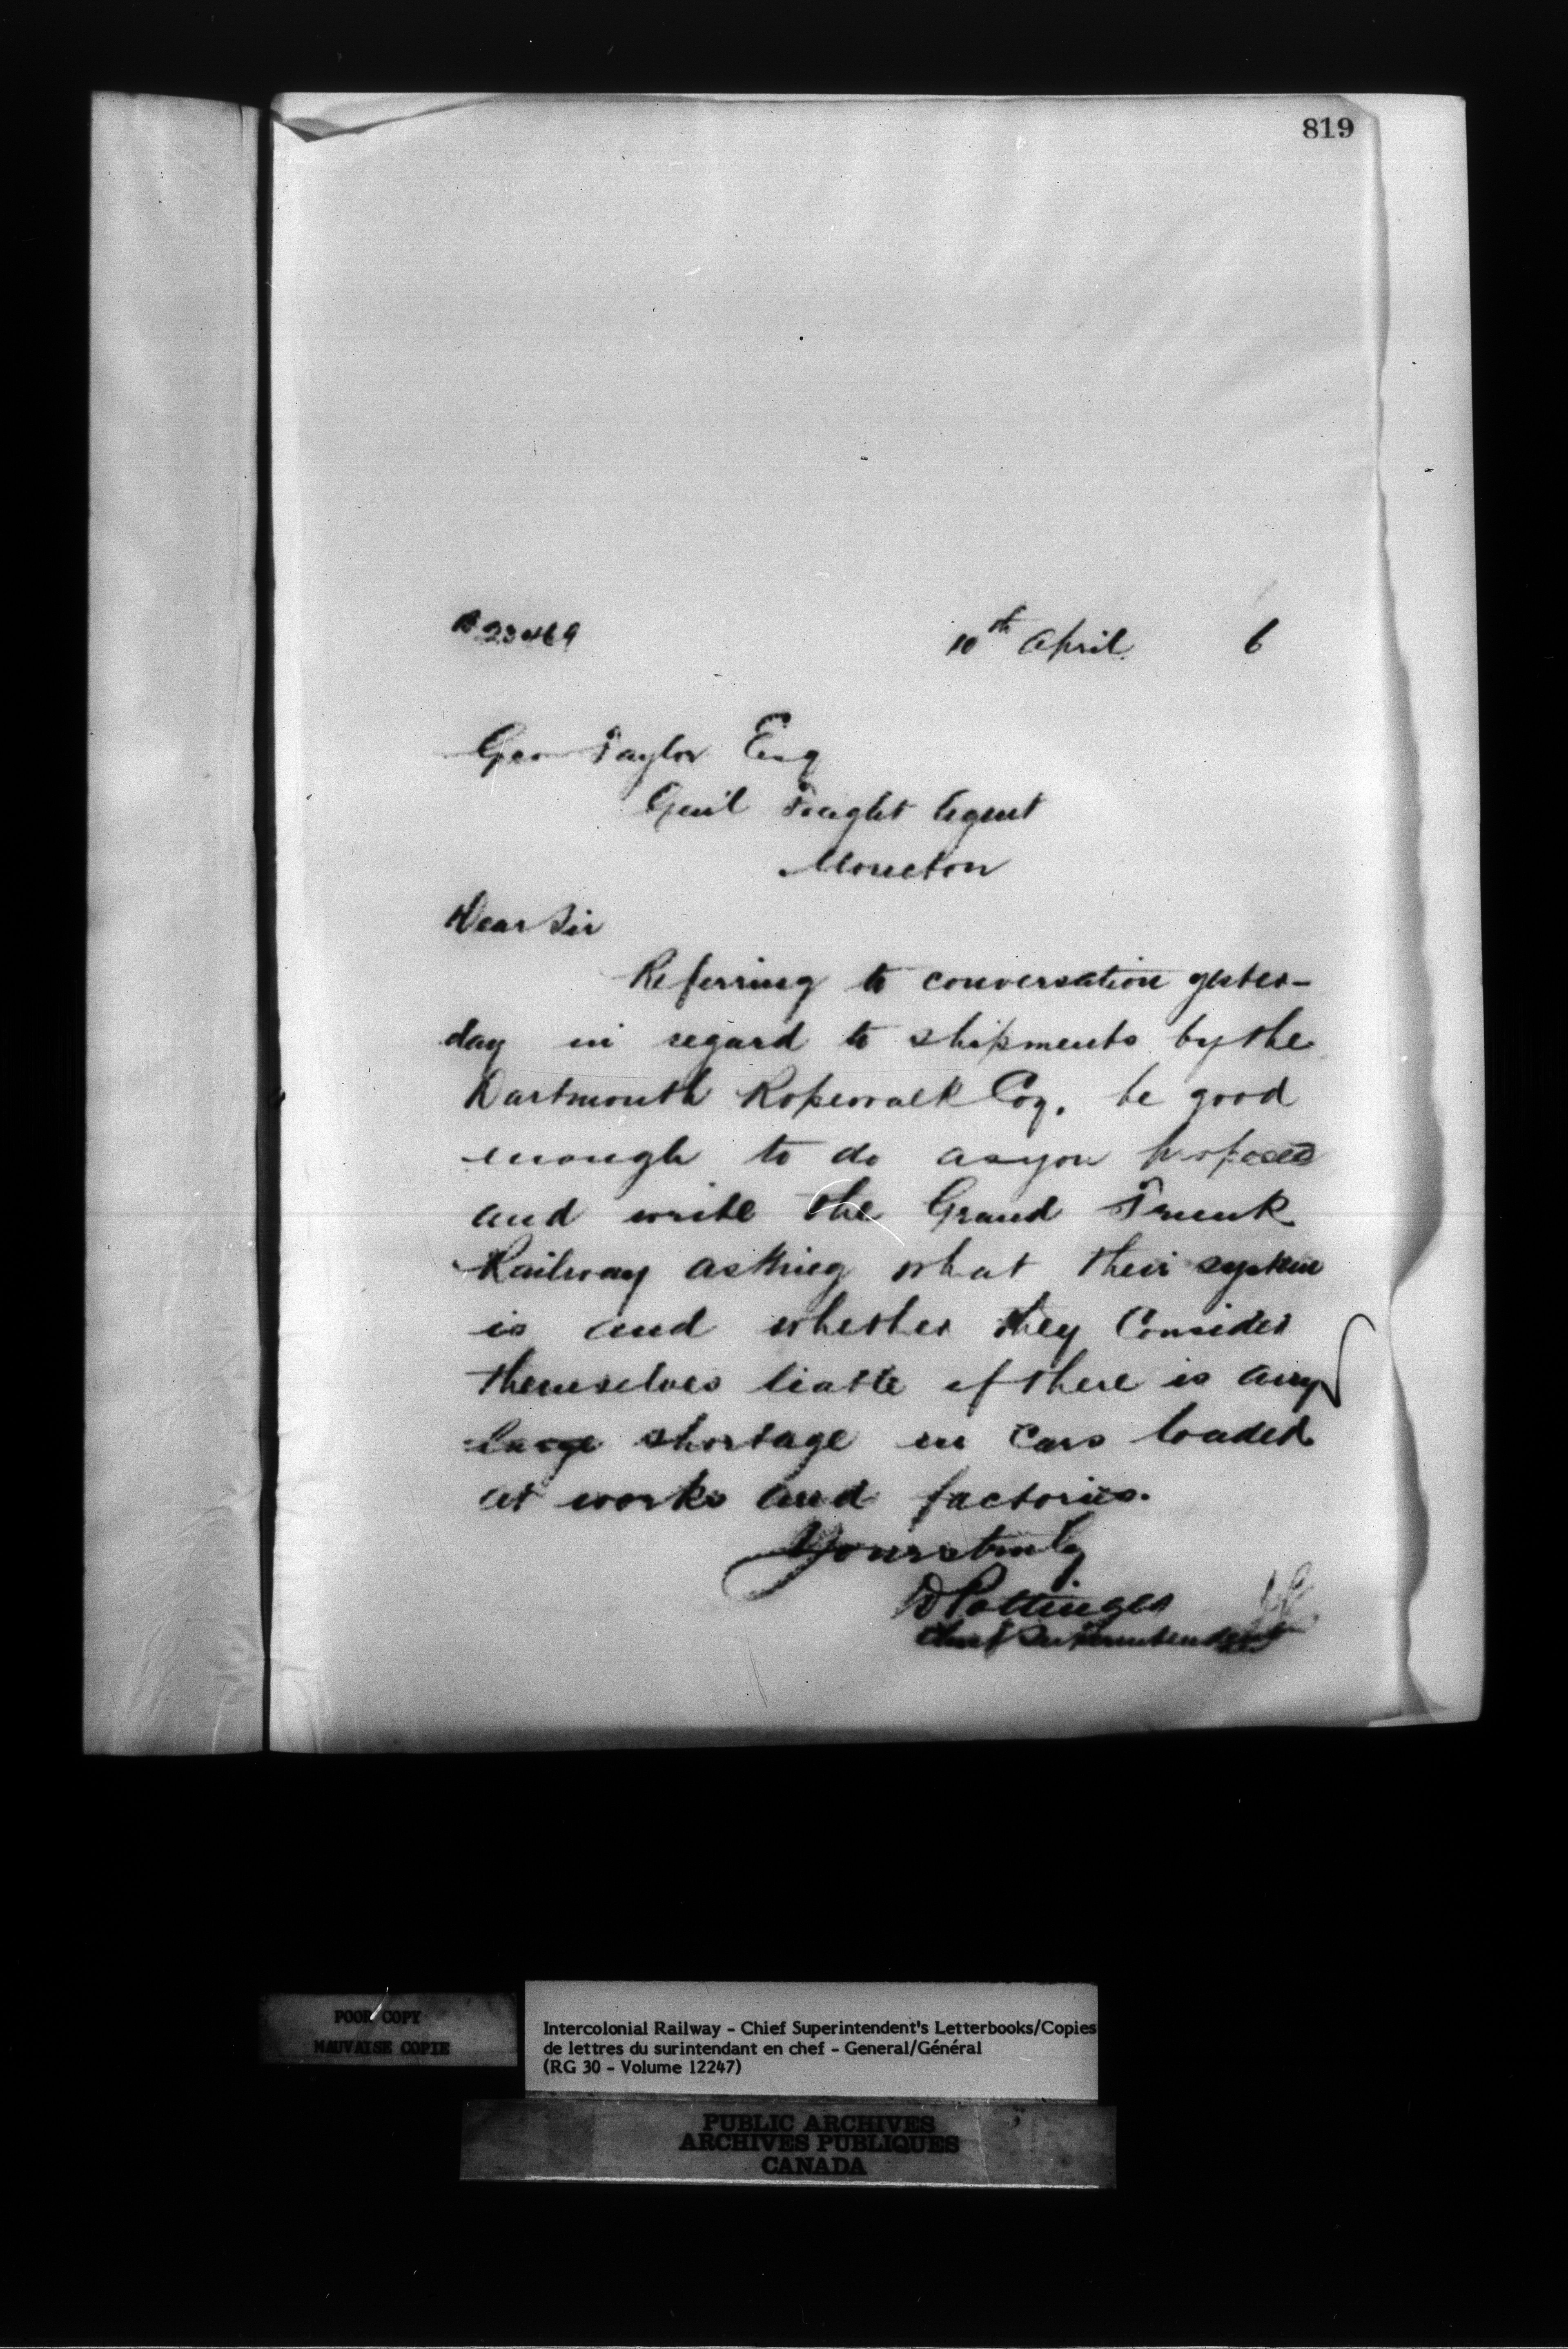 819
23469
10th April 6
Geo Taylor Esq
Genl Freight Agent
Moncton
Dear Sir
Referring to conversation yester-
day in regard to shipments by the
Dartmouth Ropewalk Coy. be good
enough to do as you proposed
and write the Grand Trunk
Railway asking what their system
is and whether they Consider
themselves liable if there is any
large shortage in Cars loaded
at works and factories.
Yours truly
D Pottinger
Chief Superintendent
POOR COPY
MAUVAISE COPIE
Intercolonial Railway - Chief Superintendent's Letterbooks/Copies
de lettres du surintendant en chef - General/Général
(RG 30 - Volume 12247)
PUBLIC ARCHIVES
ARCHIVES PUBLIQUES
CANADA